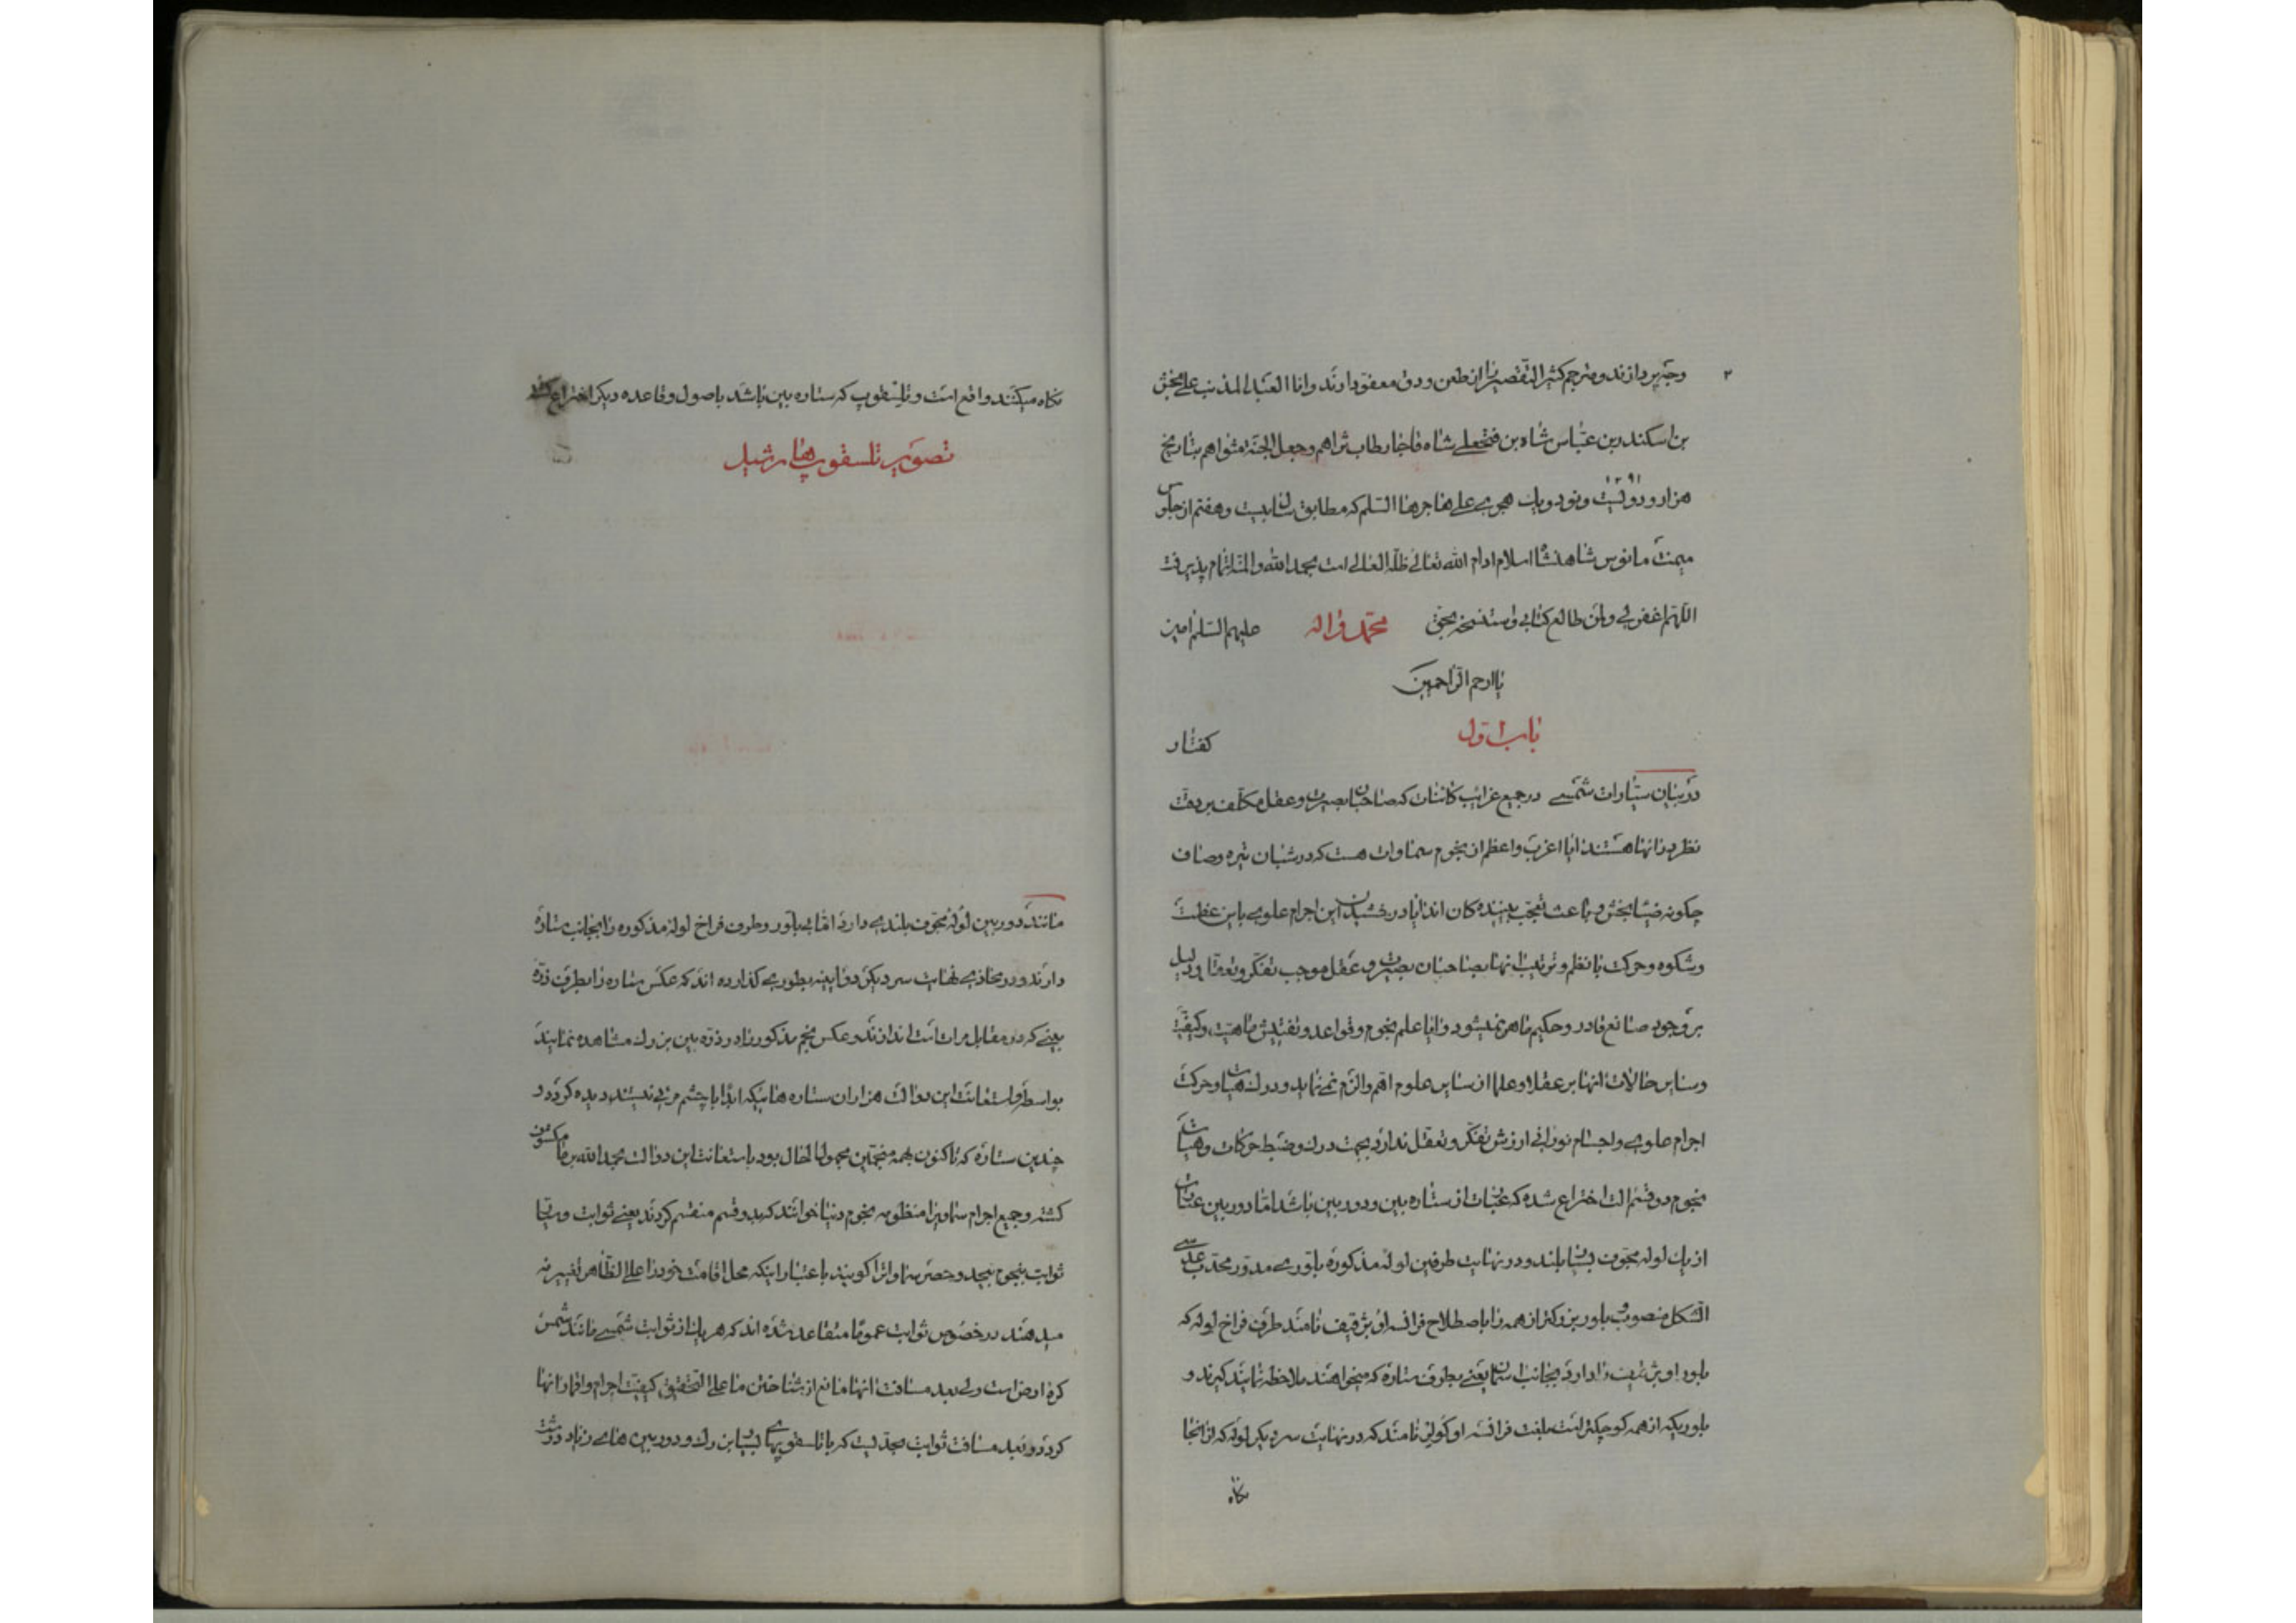 ۲
وجیزه پردازند و مترجم کثیر التقصیر را از طعن و دق معفو دارند و انا العبد المذنب علی بخش
بن اسکندر بن عباس شاه بن فتحعلی شاه قاجار طاب ثراهم و جعل الجنة مثواهم بتاریخ
۱۲۹۱
هزار و دویست و نود و یک هجری علی هاجرها السلم که مطابق سال بیست و هفتم از جلوس
میمنت مانوس شاهنشاه اسلام ادام الله تعالی ظله العالی است بحمد الله والمنه اتمام پذیرفت
اللهم اغفر لی ولمن طالع کتابی واستنسخه بحق محمد و اله علیهم السلم امین
یا ارحم الراحمین
باب اول
کفتار
در بیان سیارات شمسی در جمیع غرایب کائنات که صاحبان بصیرت و عقل مکلف بر دقت
نظر در انها هستند ایا اغرب و اعظم از نجوم سماوات هست که در شبان تیره و صاف
چکونه ضیا بخش و باعث تعجب بیننده کان اند ایا درخشیدن این اجرام علوی باین عظمت
و شکوه و حرکت با نظم و ترتیب انها بصاحبان بصیرت و عقل موجب تفکر و تعقل و دلیل
بر وجود صانع قادر و حکیم ماهر نمیشود و ایا علم نجوم و قواعد و تفتیش ماهیت و کیفیت
و سایر حالات انها بر عقلا و علما از سایر علوم اهم و الزم نمی نماید و درک هیات و حرکت
اجرام علوی و اجسام نورانی ارزش تفکر و تعقل ندارد بجهت درک و ضبط حرکات و هیات
نجوم دو قسم الت اختراع شده که عبارت از ستاره بین و دوربین باشد اما دوربین عبارت
از یک لوله مجوف بسیار بلند و در نهایت طرفین لوله مذکوره بلوری مدور محدب عدسی
الشکل منصوب و بلور بزرکتر از همه را باصطلاح فرانسه اوبژقتیف نامند طرف فراخ لوله که
بلور اوبژقتیف را دارد بجانب اسمان یعنی بطرف ستاره که میخواهند ملاحظه نمایند کیرند و
بلوریکه از همه کوچکتر است بلغت فرانسه اوکولر نامند که در نهایت سر دیکر لوله که از انجا
نکاه
نکاه میکنند واقع است و تلسقوپ که ستاره بین باشد باصول و قاعده دیکر اختراع کشته
تصویر تلسقوپ هارشیل
مانند دوربین لوله مجوف بلندی دارد اما بی بلور و طرف فراخ لوله مذکوره را بجانب ستاره
دارند و در محاذی نهایت سر دیکر دو ایینه بطوری کذارده اند که عکس ستاره را بطرف ذره
بینی که در مقابل مرات است اندازند و عکس نجم مذکور را در ذره بین بزرک مشاهده نمایند
بواسطه و استعانت این دو الت هزاران ستاره هائیکه ابدا با چشم مرئی نیستند دیده کردد و
چندین ستاره که تاکنون بهمه منجمین مجهول الحال بود باستعانت این دو الت بحمد الله بر ما مکشوف
کشته و جمیع اجرام سماویرا منظومه نجوم دنیا خوانند که بدو قسم منقسم کردند یعنی ثوابت و سیار
ثوابت نجوم بیحد و حصر سماواترا کویند باعتبار اینکه محل اقامت خود را علی الظاهر تغییر نه
میدهند در خصوص ثوابت عموما متقاعد شده اند که هر یک از ثوابت شمسی مانند شمس
کره ارض است ولی بعد مسافت انها مانع از شناختن ما علی التحقیق کیفیت اجرام و اقمار انها
کردد و بعد مسافت ثوابت بحدیست که با تلسقوپهای بسیار بزرک و دوربین های زیاد درشت